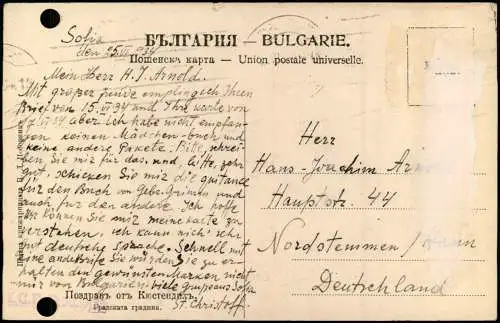 БЪЛГАРИЯ – BULGARIE.
Пощенска карта – Union postale universelle.
Sofia
den 25.VII.934
Mein Herr H. J. Arnold.
Mit großer freude empfing ich Ihren
Brief von 15.VI.34 und Ihre karte von
VI.34 aber ich habe nicht empfan-
gen keinen Mädchen-buch und
keine andere Pakete. Bitte, schrei-
ben Sie mir für das, und, bitte, sehr
gut, schicken Sie mir die quitance
für den Buch von Gebr. Grimm und
auch für den andere. Ich hoffe
Sie können mir meine karte zu
verstehen, ich kann nicht sehr
gut deutsche sprache. Schnell mit
eine andere Briefe Sie würden zu er-
halten den gewünsten Marken nicht
nur von Bulgarien. Viele grüße aus Sofia
St. Christoff
Herr
Hans-Joachim
Hauptstr. 44
Nordstemmen /
Deutschland
Поздравъ отъ Кюстендилъ.
Градската градина.